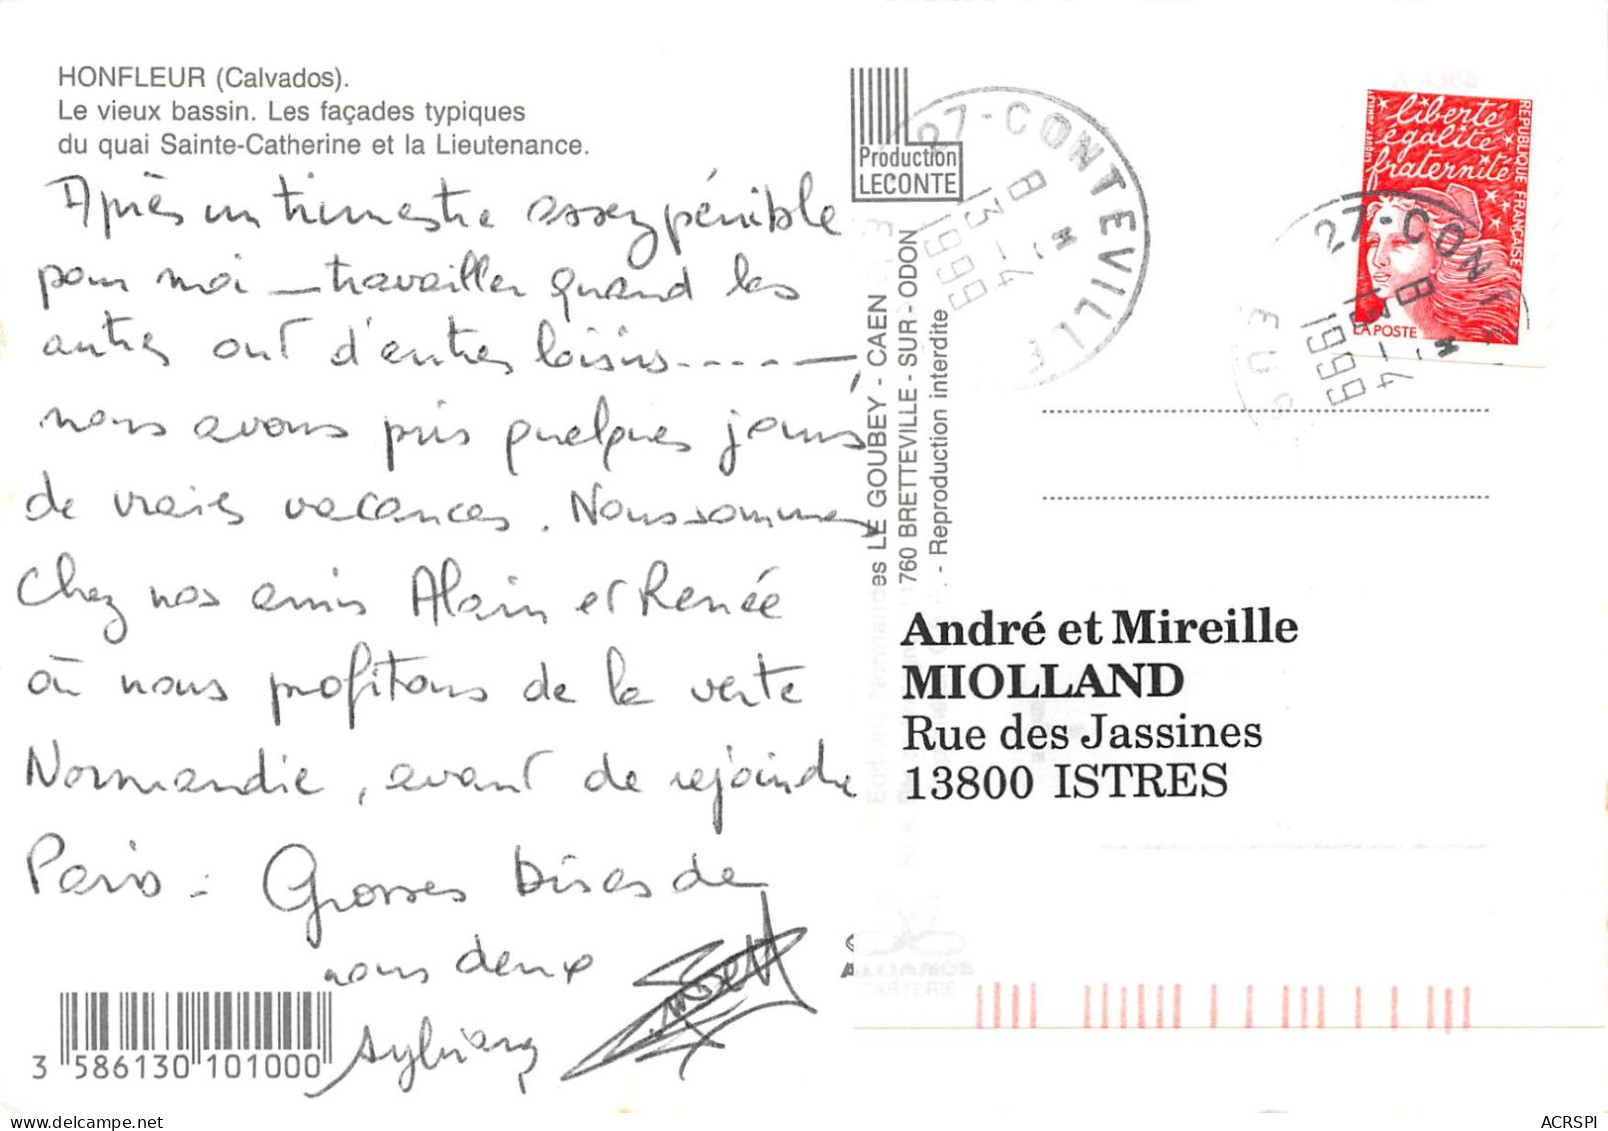 HONFLEUR (Calvados).
Le vieux bassin. Les façades typiques
du quai Sainte-Catherine et la Lieutenance.
Après un trimestre assez pénible
pour moi - travailler quand les
autres ont d'autres loisirs -----,
nous avons pris quelques jours
de vraies vacances. Nous sommes
chez nos amis Alain et Renée
où nous profitons de la verte
Normandie, avant de rejoindre
Paris - Grosses bises de
nous deux
Sylviane
3 586130 101000
Production
LECONTE
LE GOUBEY - CAEN
760 BRETTEVILLE - SUR - ODON
- Reproduction interdite
27-CONTEVILLE
13-4
1999
liberté
égalité
fraternité
RÉPUBLIQUE FRANÇAISE
LA POSTE
27-CONT
13-4
1999
EU
André et Mireille
MIOLLAND
Rue des Jassines
13800 ISTRES
ALLIANCE
CARTERIE
ACRSPI